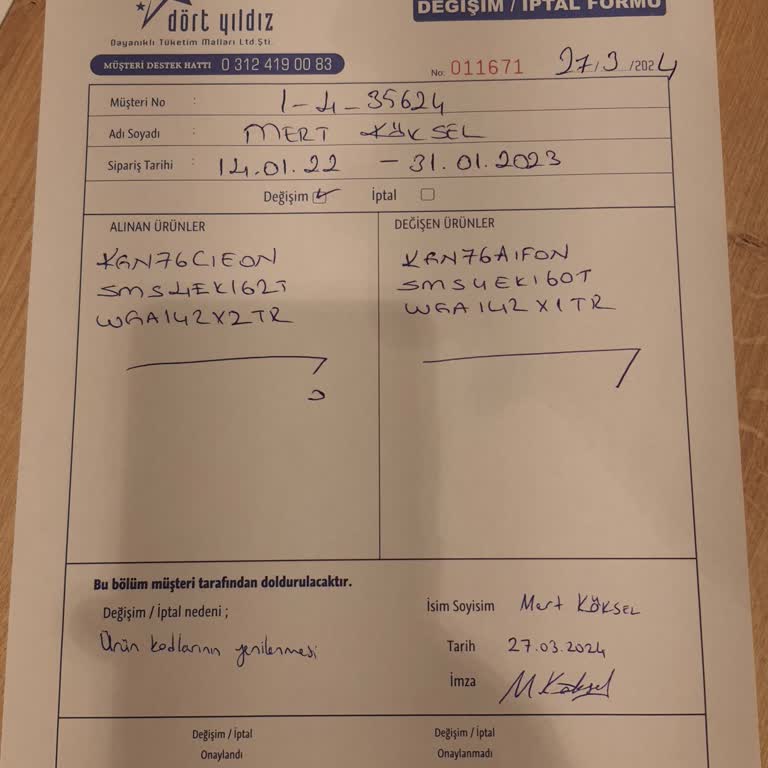 dört yıldız
Dayanıklı Tüketim Malları Ltd.Şti.
DEĞİŞİM / İPTAL FORMU
MÜŞTERİ DESTEK HATTI 0 312 419 00 83
No: 011671 27/3/2024
Müşteri No : 1-4-35624
Adı Soyadı : MERT KÖKSEL
Sipariş Tarihi : 14.01.22 - 31.01.2023
Değişim İptal
ALINAN ÜRÜNLER
KGN76CIEON
SMS4EKI62T
WGA142X2TR
DEĞİŞEN ÜRÜNLER
KGN76AIFON
SMS4EKI60T
WGA142X1TR
Bu bölüm müşteri tarafından doldurulacaktır.
Değişim / İptal nedeni ;
Ürün kodlarının yenilenmesi
İsim Soyisim Mert KÖKSEL
Tarih 27.03.2024
İmza M Köksel
Değişim / İptal
Onaylandı
Değişim / İptal
Onaylanmadı